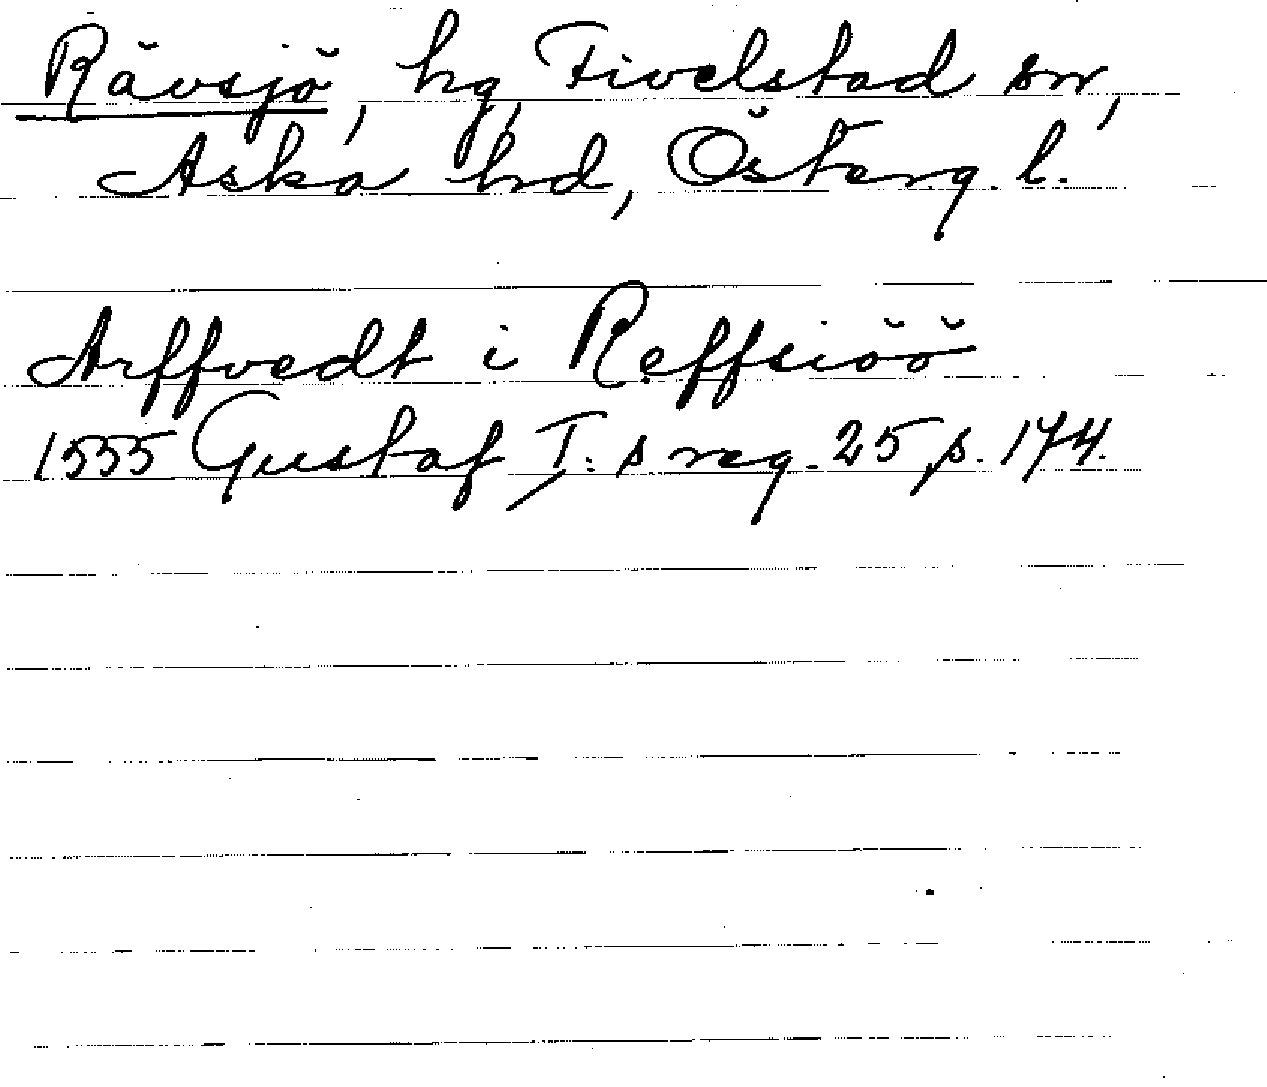 Rävsjö, hg, Fivelstad sn,
Aska hd, Österg. l.
Arffvedt i Reffsiöö
1555 Gustaf I:s reg. 25, s. 174.